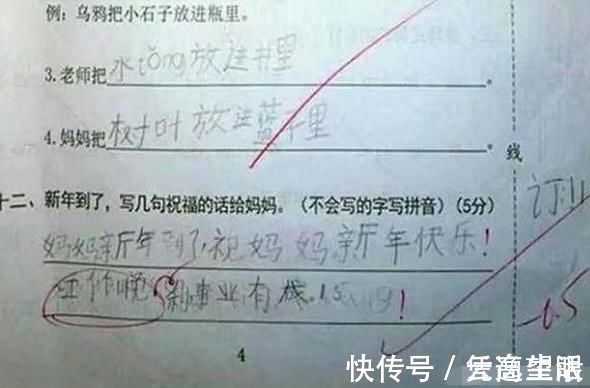 例：乌鸦把小石子放进瓶里。
3.老师把水tǒng放进井里。
4.妈妈把树叶放进蓝子里。
线
十二、新年到了，写几句祝福的话给妈妈。（不会写的字写拼音）（5分）
订
妈妈新年到了,祝妈妈新年快乐!
工作 事业有成
-0.5
4
快传号／